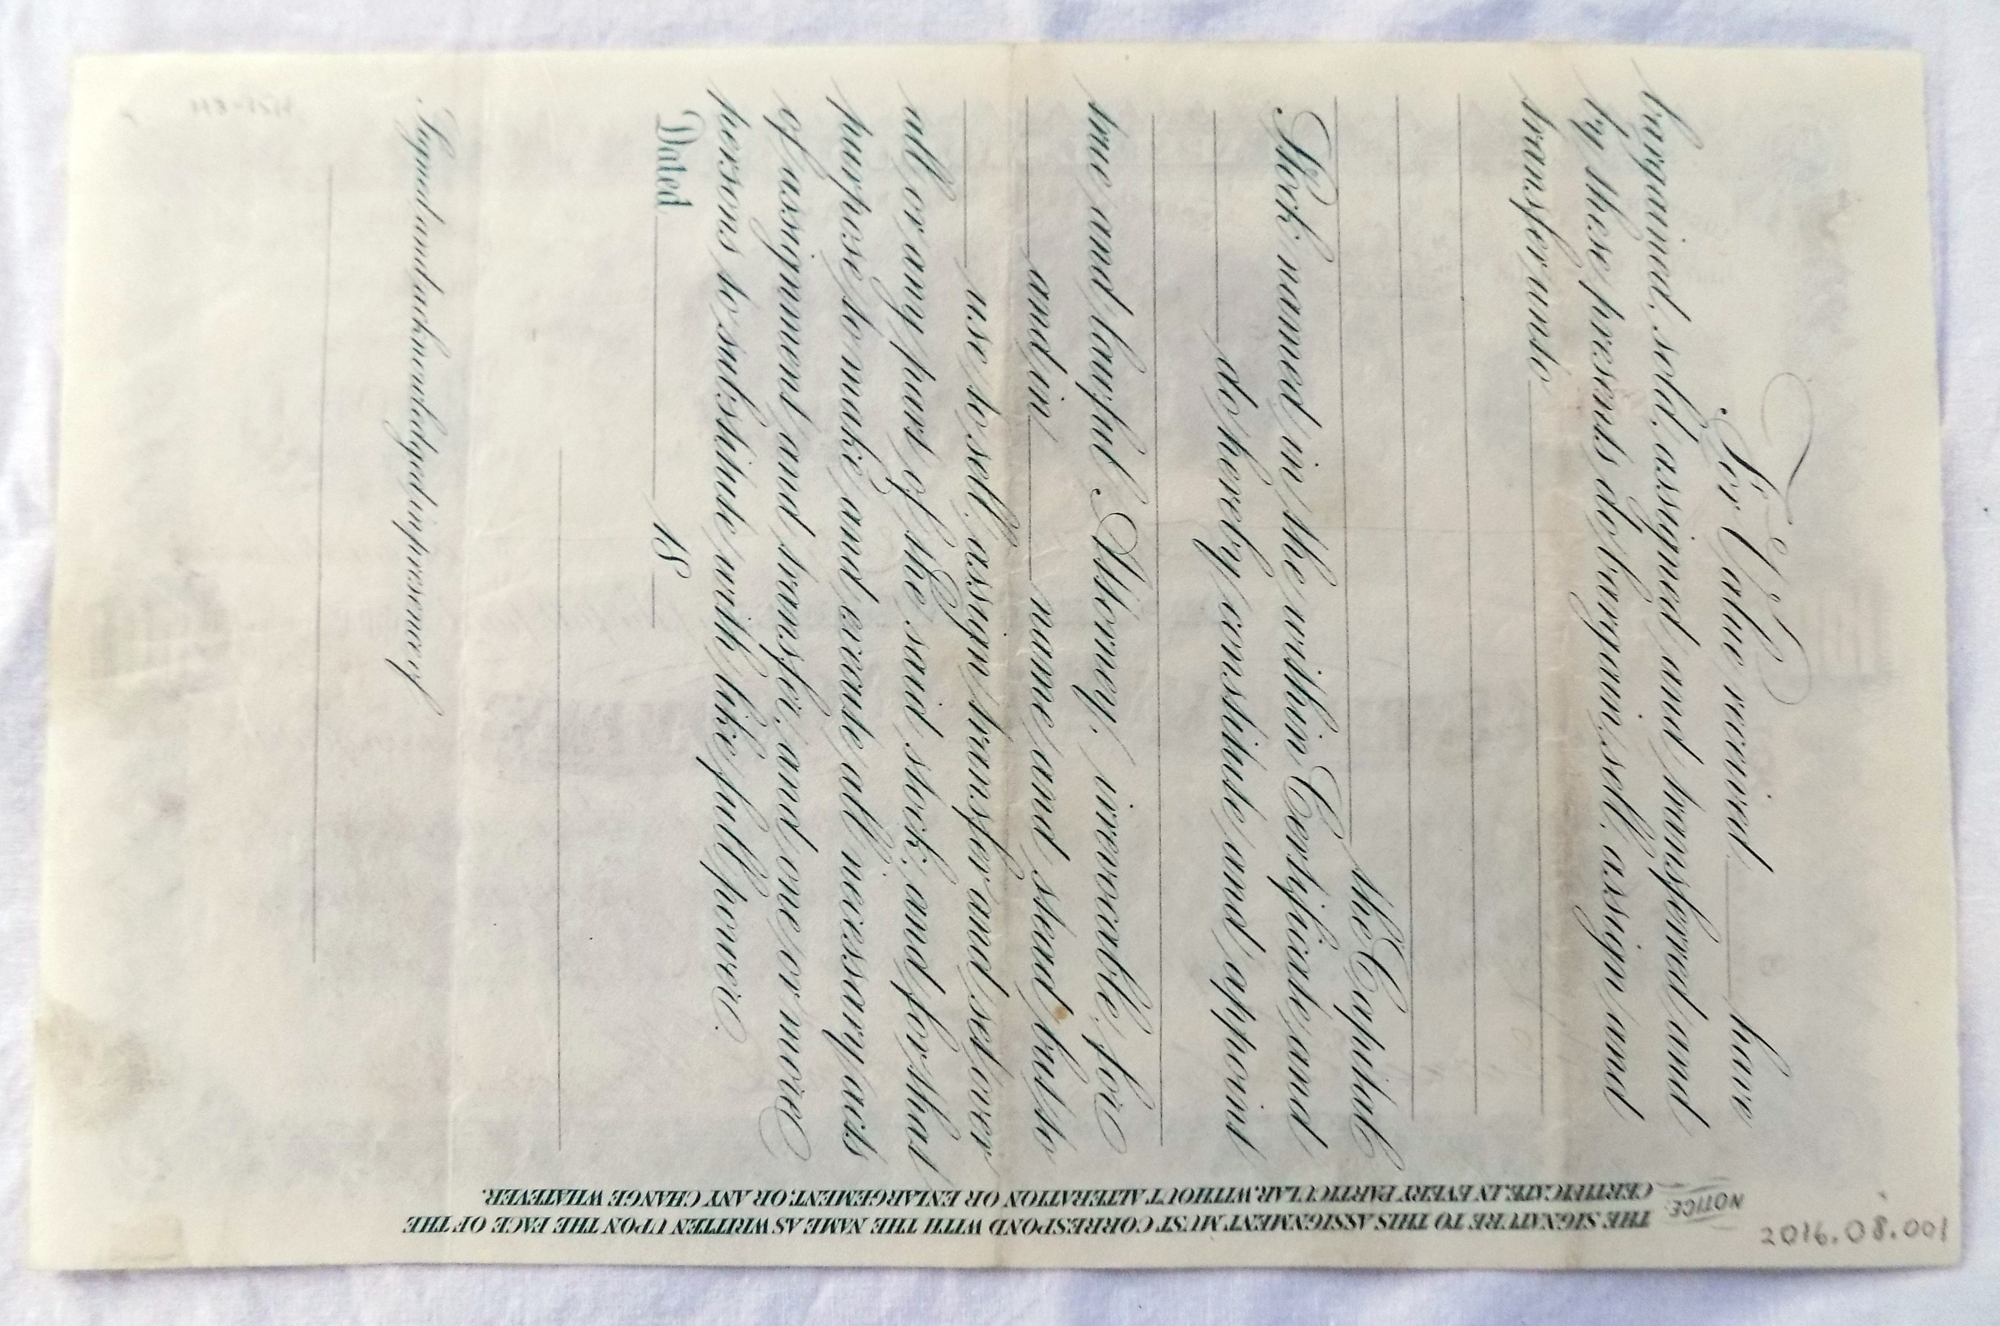 For Value received ______ have
bargained, sold, assigned and transferred and
by these presents do bargain, sell, assign and
transfer unto
the Capital
Stock named in the within Certificate and
do hereby constitute and appoint
true and lawful Attorney, irrevocable for
and in ______ name and stead but to
use to sell, assign, transfer and set over
all or any part of the said stock, and for that
purpose to make and execute all necessary acts
of assignment and transfer, and one or more
persons to substitute with like full power.
Dated ______ 18
Signed and acknowledged in presence of
NOTICE.
THE SIGNATURE TO THIS ASSIGNMENT MUST CORRESPOND WITH THE NAME AS WRITTEN UPON THE FACE OF THE
CERTIFICATE, IN EVERY PARTICULAR, WITHOUT ALTERATION OR ENLARGEMENT, OR ANY CHANGE WHATEVER.
2016.08.001